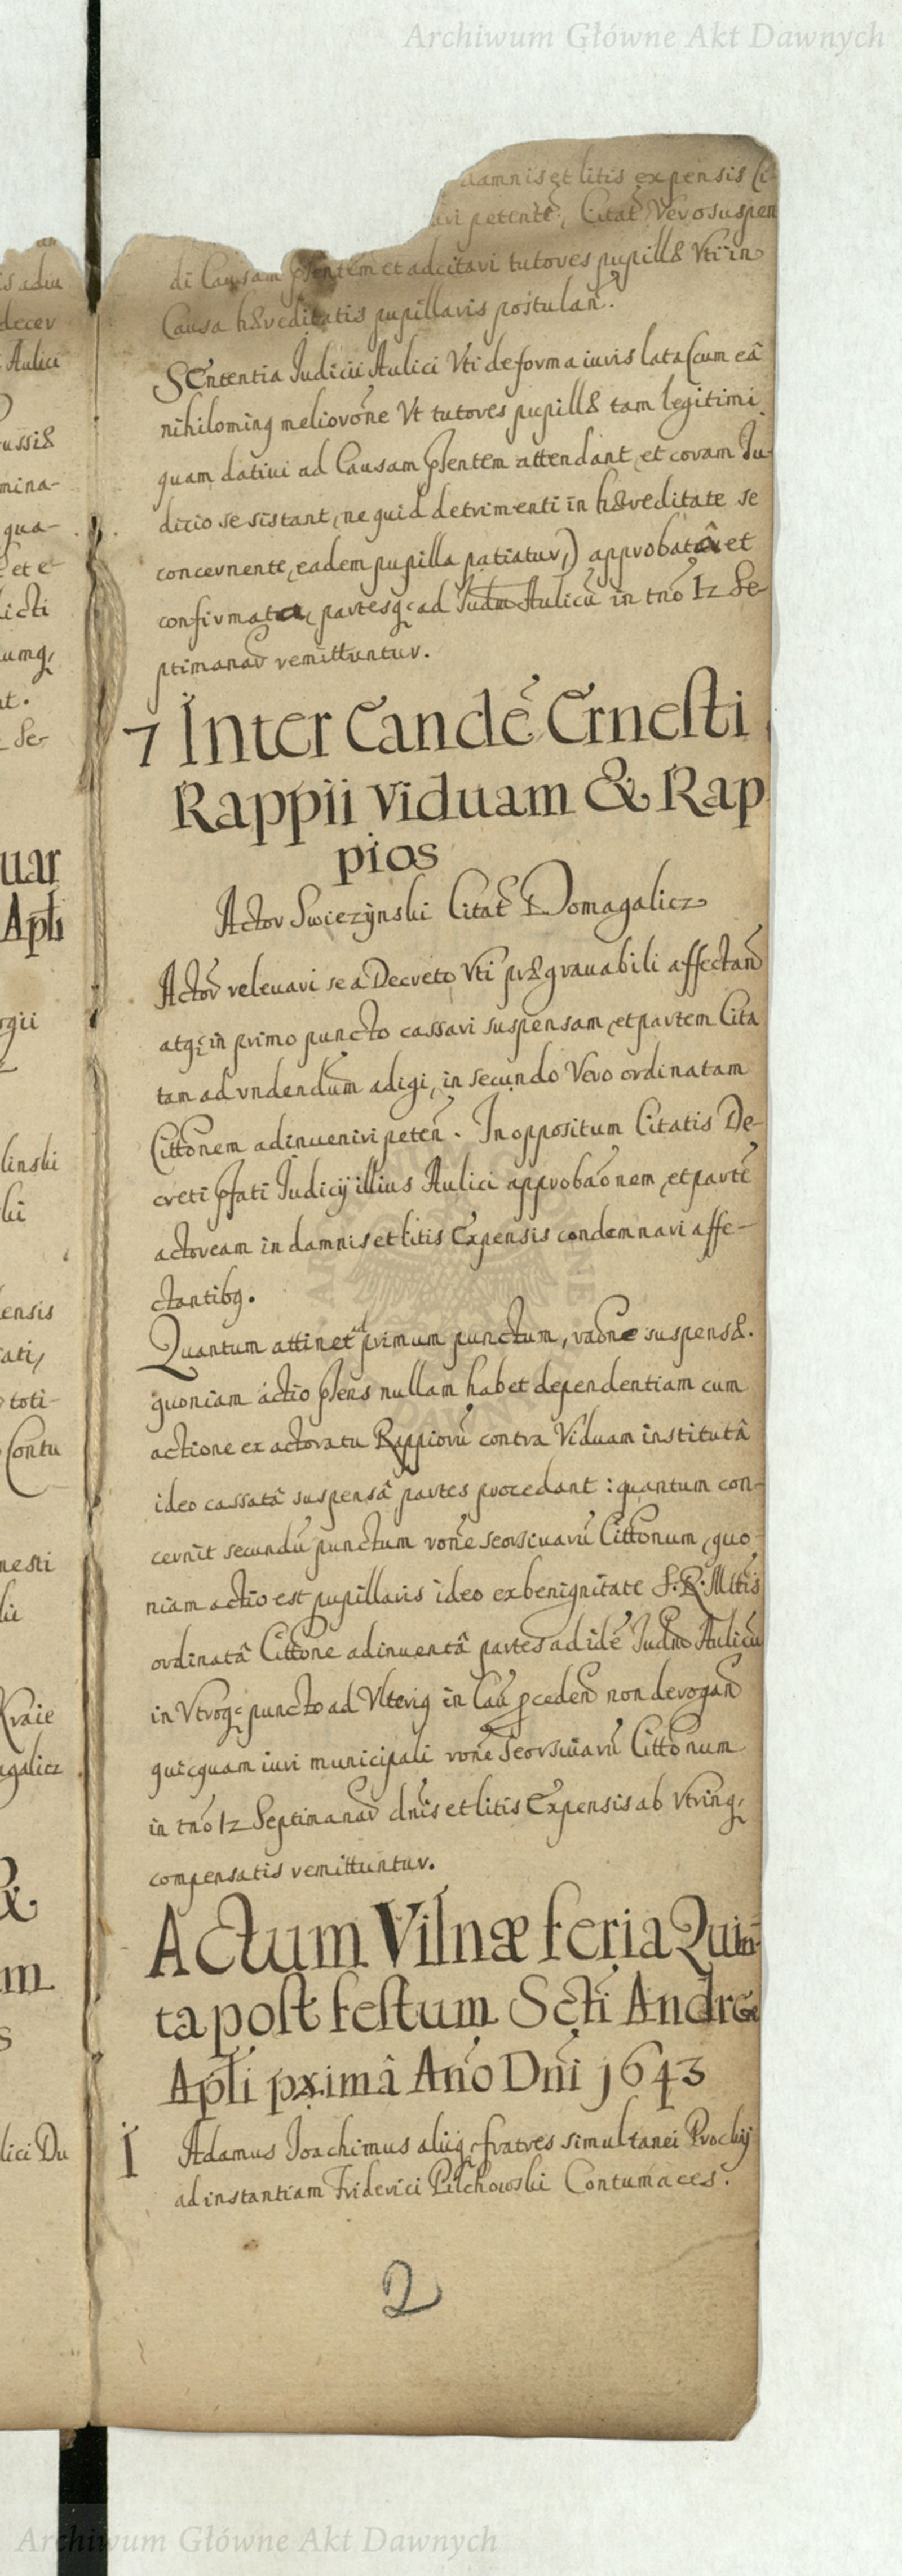 Archiwum Główne Akt Dawnych
damnis et litis expensis Ci-
petentē, Citat. Vero suspen
di Causam pñtem et adcitari tutores pupillæ Vti in
Causa hæreditatis pupillaris postulañ.
SEntentia Iudicii Aulici Vti de forma iuris lata (cum eâ
nihilominq meliorōne Vt tutores pupillæ tam legitimi
quam datiui ad Causam pñtem attendant, et coram Iu-
dicio se sistant, ne quid detrimenti in hæreditate se
concernente, eadem pupilla patiatur,) approbatâ et
confirmata, partesq; ad Iudm Aulicū in tñō 12 Se-
ptimanar̄ remittuntur.
7 Inter Candē Ernesti
Rappii Viduam & Rap
pios
Actor Swiezÿnski Citat. Domagalicz
Actor̄ releuari se a Decreto Vti prægrauabili affectañ
atq; in primo puncto cassari suspensam, et partem Cita
tam ad undendum adigi, in secundo Vero ordinatam
Cittōnem adinueniri peteñ. In oppositum Citatis De-
creti pfati Iudicij illius Aulici approbaōnem, et partē
actoream in damnis et litis Expensis condemnari affe-
ctantibq.
Quantum attinet ad primum punctum, rāone suspensæ.
quoniam actio pñens nullam habet dependentiam cum
actione ex actoratu Rappiorū contra Viduam institutâ
ideo cassatâ suspensâ partes procedant : quantum con-
cernit secundū punctum rōne seorsiuarū Cittōnum, quo-
niam actio est pupillaris ideo ex benignitate S. R. Mttis
ordinatâ Cittōne adinuentâ partes ad idē Iudm̄ Aulicū
in Vtroq; puncto ad Vlteriq in Cau p̄cedeñ non derogañ
quicquam iuri municipali rōne seorsiuarū Cittōnum
in tñō 12 Septimanar̄ dñis et litis Expensis ab Vtrinq;
compensatis remittuntur.
Actum Vilnæ feria Quin-
ta post festum Scti Andreæ
Apli pximâ Año Dñi 1643
I Adamus Ioachimus aliiq; fratres simultanei Prockij
ad instantiam Friderici Pilchowski Contumaces.
2
Archiwum Główne Akt Dawnych